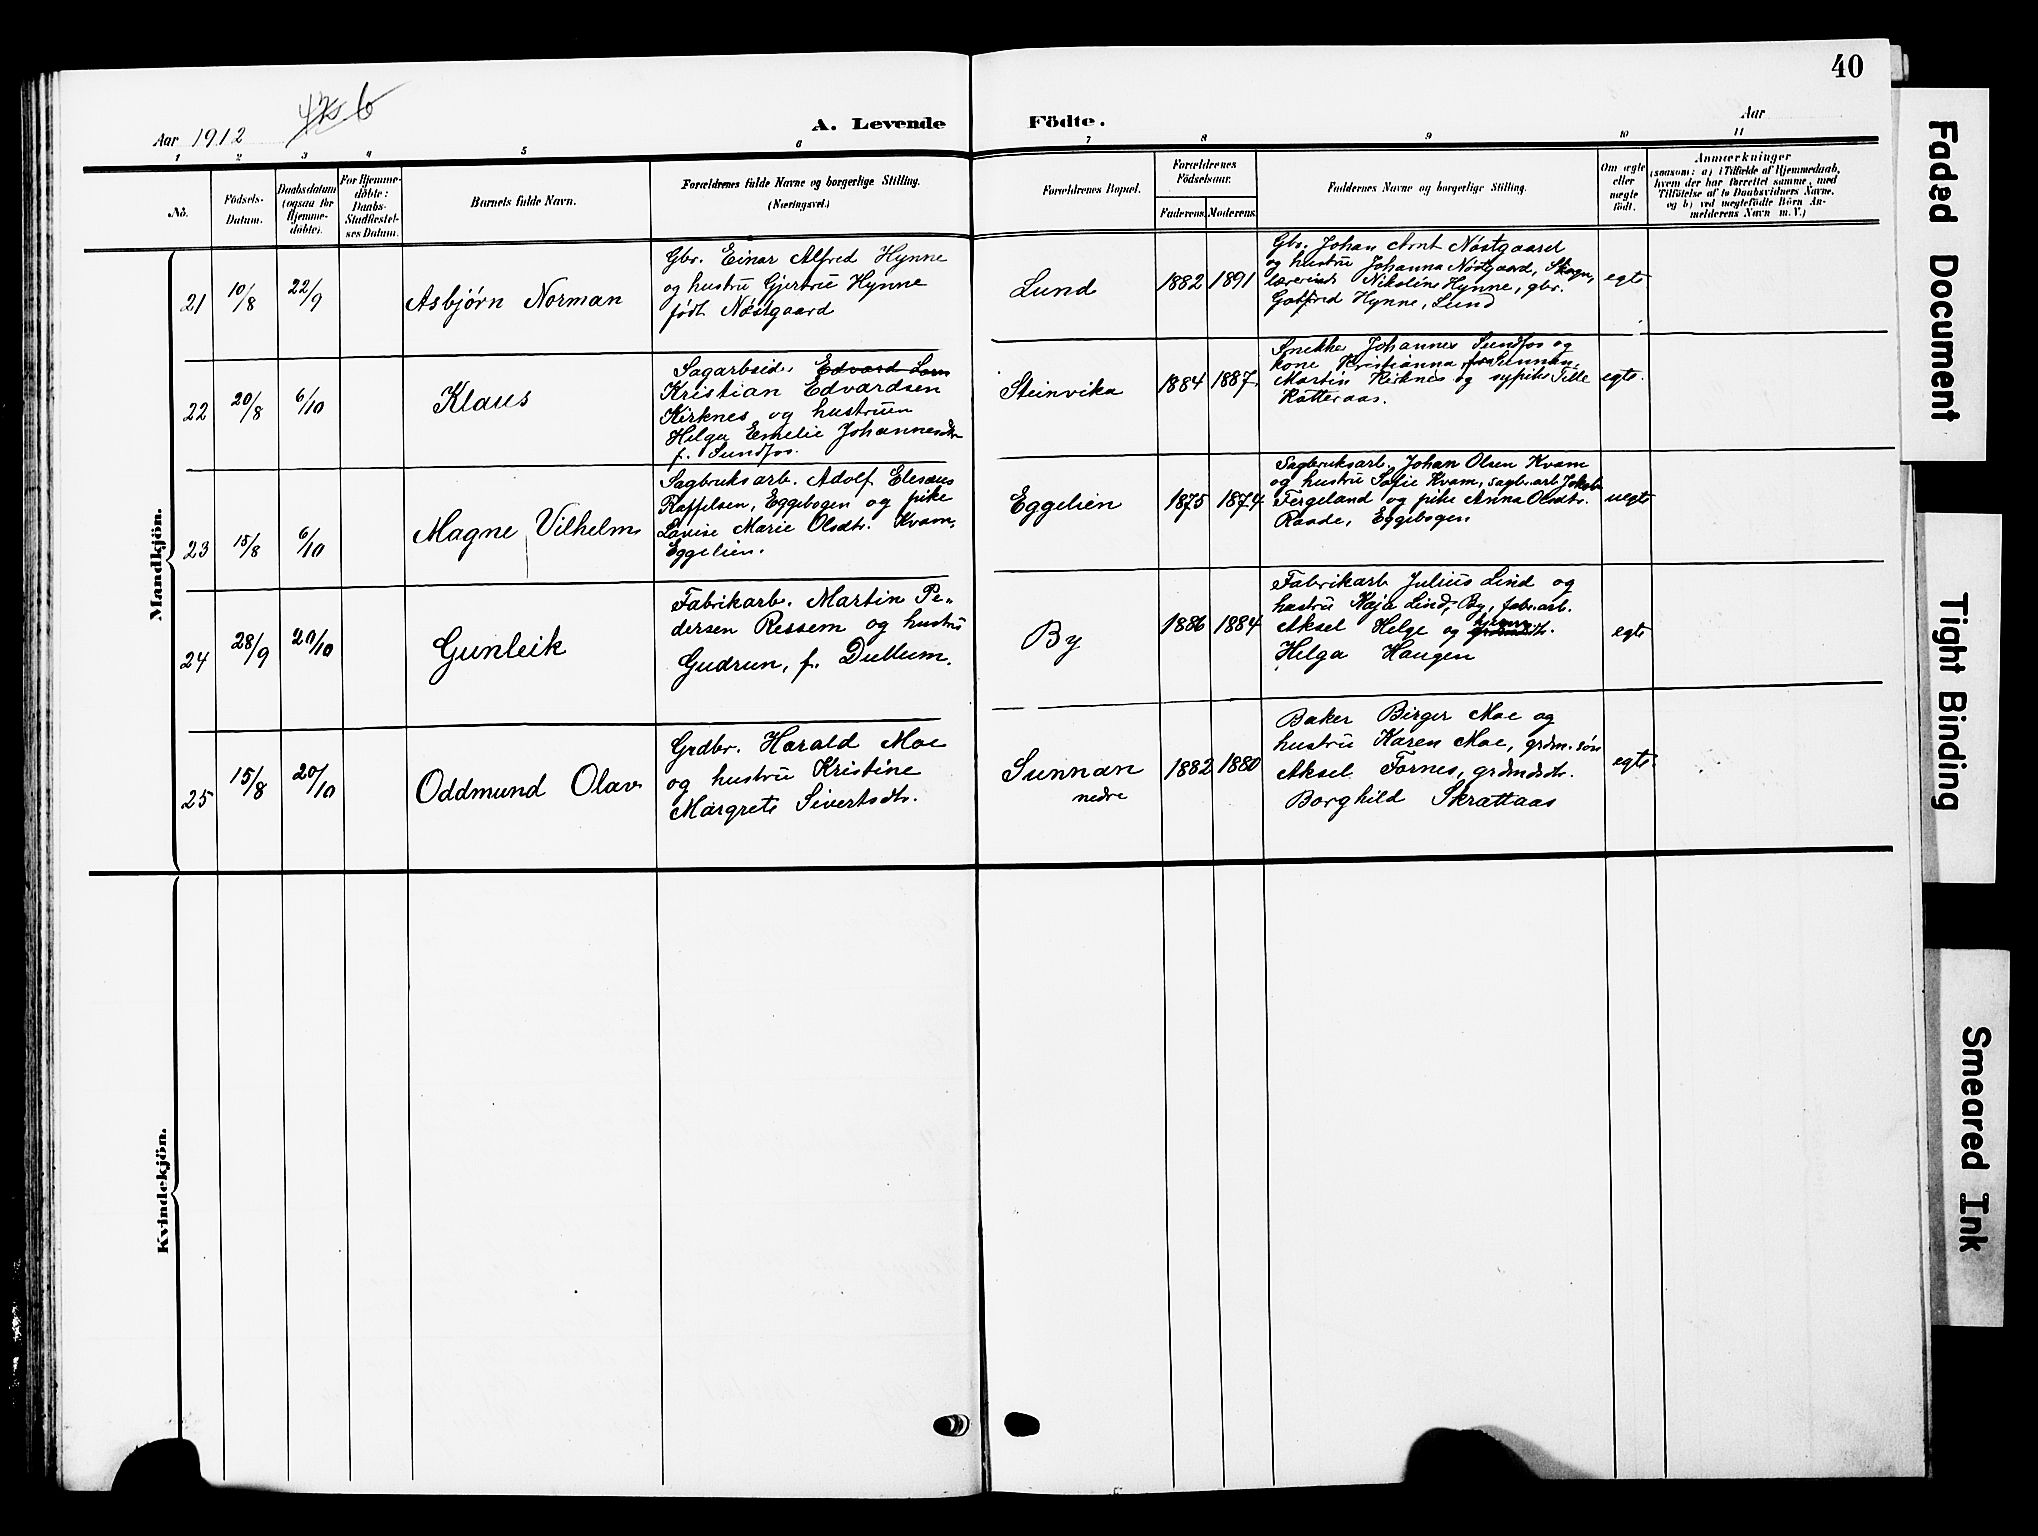 40
Aar 1912
A. Levende Födte.
Aar
1 2 3 4 5 6 7 8 9 10 11
No.
Födsels-Datum.
Daabsdatum (ogsaa for Hjemme-döbte).
For Hjemme-döbte: Daabs-Stadfæstel-ses Datum.
Barnets fulde Navn.
Forældrenes fulde Navne og borgerlige Stilling.
(Næringsvei.)
Forældrenes Bopæl.
Forældrenes Födselsaar.
Faderens. Moderens.
Faddernes Navne og borgerlige Stilling.
Om ægte eller uægte födt.
Anmærkninger
(saasom: a) i Tilfælde af Hjemmedaab,
hvem der har forrettet samme, med
Tilföielse af to Daabsvidners Navne,
og b) ved uægtefödte Börn An-
melderens Navn m. V.)
Mandkjön.
21 10/8 22/9
Asbjørn Norman
Gbr. Einar Alfred Hynne
og hustru Gjertru Hynne
født Nøstgaard
Lund
1882 1891
Gbr. Johan Arnt Nøstgaard
og hustru Johanna Nøstgaard, Skogn,
lærerinde Nikoline Hynne, gbr.
Gotfred Hynne, Lund
egte
22 20/8 6/10
Klaus
Sagarbeid. Edvard
Kristian Edvardsen
Kirknes og hustruen
Helga Emelie Johannesdtr
f. Sundfos.
Steinvika
1884 1887
Snekker Johannes Sundfos og
kone Kristianna Sunnan
Martin Kirknes og sypike Tille
Ratteraas.
egte.
23 15/8 6/10
Magne Vilhelm
Sagbruksarb. Adolf Eleseus
Raffelsen, Eggebogen og pike
Lovise Marie Olsdtr. Kvam,
Eggelien.
Eggelien
1875 1874
Sagbruksarb. Johan Olsen Kvam
og hustru Sofie Kvam, sagbr.arb. Jakob
Fergeland og pike Anna Olsdtr.
Raade, Eggebogen
uegte
24 28/9 20/10
Gunleik
Fabrikarb. Martin Pe-
dersen Ressem og hustru
Gudrun, f. Dullum.
By
1886 1884
Fabrikarb. Julius Lind og
hustru Kaja Lind, By, fabr.arb.
Aksel Helge og
Helga Haugen
egte
25 15/8 20/10
Oddmund Olav
Grdbr. Harald Moe
og hustru Kristine
Margrete Sivertsdtr.
Sunnan
nedre
1882 1880
Baker Birger Moe og
hustru Karen Moe, grdm.søn
Aksel Fornes, grdmdtr.
Borghild Skrattaas
egte
Kvindekjön.
Faded Document
Tight Binding
Smeared Ink